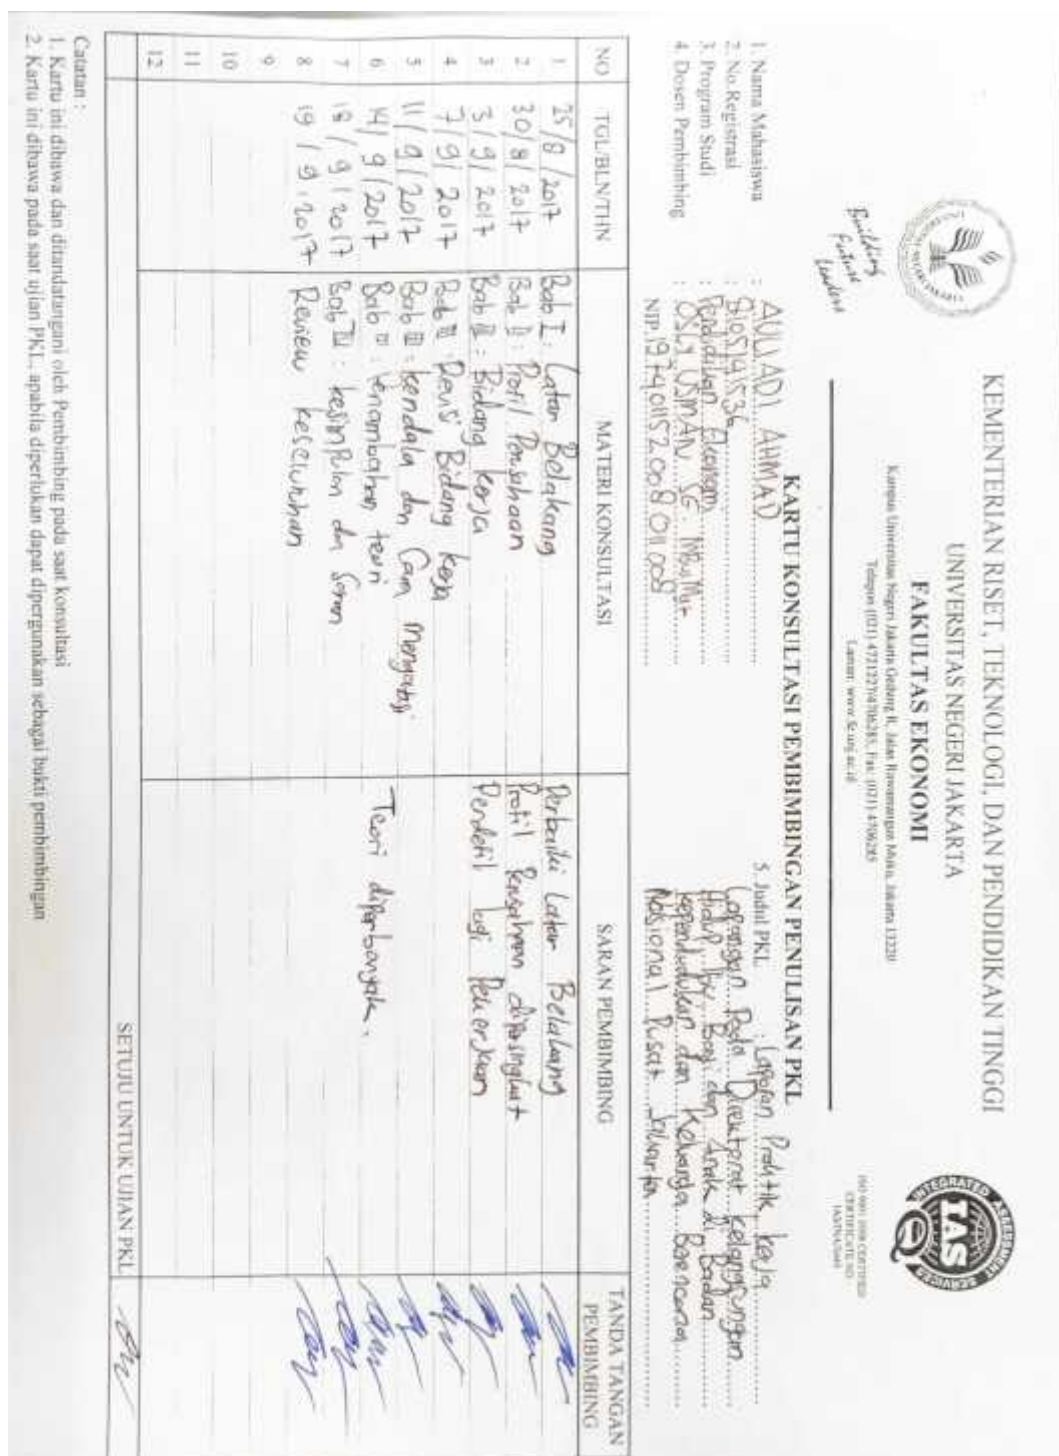 Building
Future
Leaders
KEMENTERIAN RISET, TEKNOLOGI, DAN PENDIDIKAN TINGGI
UNIVERSITAS NEGERI JAKARTA
FAKULTAS EKONOMI
Kampus Universitas Negeri Jakarta Gedung R, Jalan Rawamangun Muka, Jakarta 13220
Telepon (021) 4721227/4706285, Fax: (021) 4706285
Laman: www.fe.unj.ac.id
INTEGRATED ASSESSMENT SERVICES
IAS
ISO 9001:2008 CERTIFIED
CERTIFICATE NO
KARTU KONSULTASI PEMBIMBINGAN PENULISAN PKL
1. Nama Mahasiswa : AULIADI AHMAD
2. No.Registrasi :
3. Program Studi : Pendidikan Ekonomi
4. Dosen Pembimbing : OSLY USMAN SE.
NIP. 197401152008011008
5. Judul PKL : Laporan Praktik kerja
Lapangan Pada Direktorat kelangsungan
Hidup Ibu Bayi dan Anak di Badan
kependudukan dan Keluarga Berencana
Nasional Pusat Jakarta
NO TGL/BLN/THN MATERI KONSULTASI SARAN PEMBIMBING TANDA TANGAN PEMBIMBING
1 25/8/2017 Bab I : Latar Belakang Perbaiki Latar Belakang
2 30/8/2017 Bab II : Profil Perusahaan Profil Perusahaan dipersingkat
3 3/9/2017 Bab III : Bidang kerja Perdetil lagi Pekerjaan
4 7/9/2017 Bab III : Revisi Bidang kerja
5 11/9/2017 Bab III : kendala dan Cara mengatasi
6 14/9/2017 Bab III : Penambahan teori Teori diperbanyak.
7 18/9/2017 Bab IV : kesimpulan dan Saran
8 19/9/2017 Review keseluruhan
9
10
11
12
SETUJU UNTUK UJIAN PKL
Catatan :
1. Kartu ini dibawa dan ditandatangani oleh Pembimbing pada saat konsultasi
2. Kartu ini dibawa pada saat ujian PKL, apabila diperlukan dapat dipergunakan sebagai bukti pembimbingan